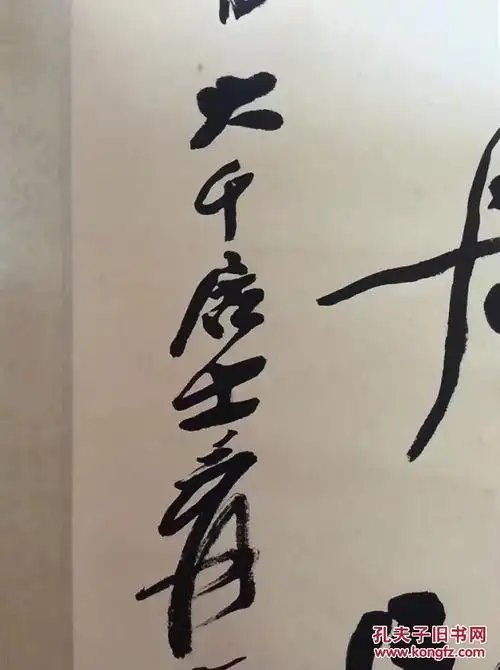 大千居士爰
孔夫子旧书网
www.kongfz.com